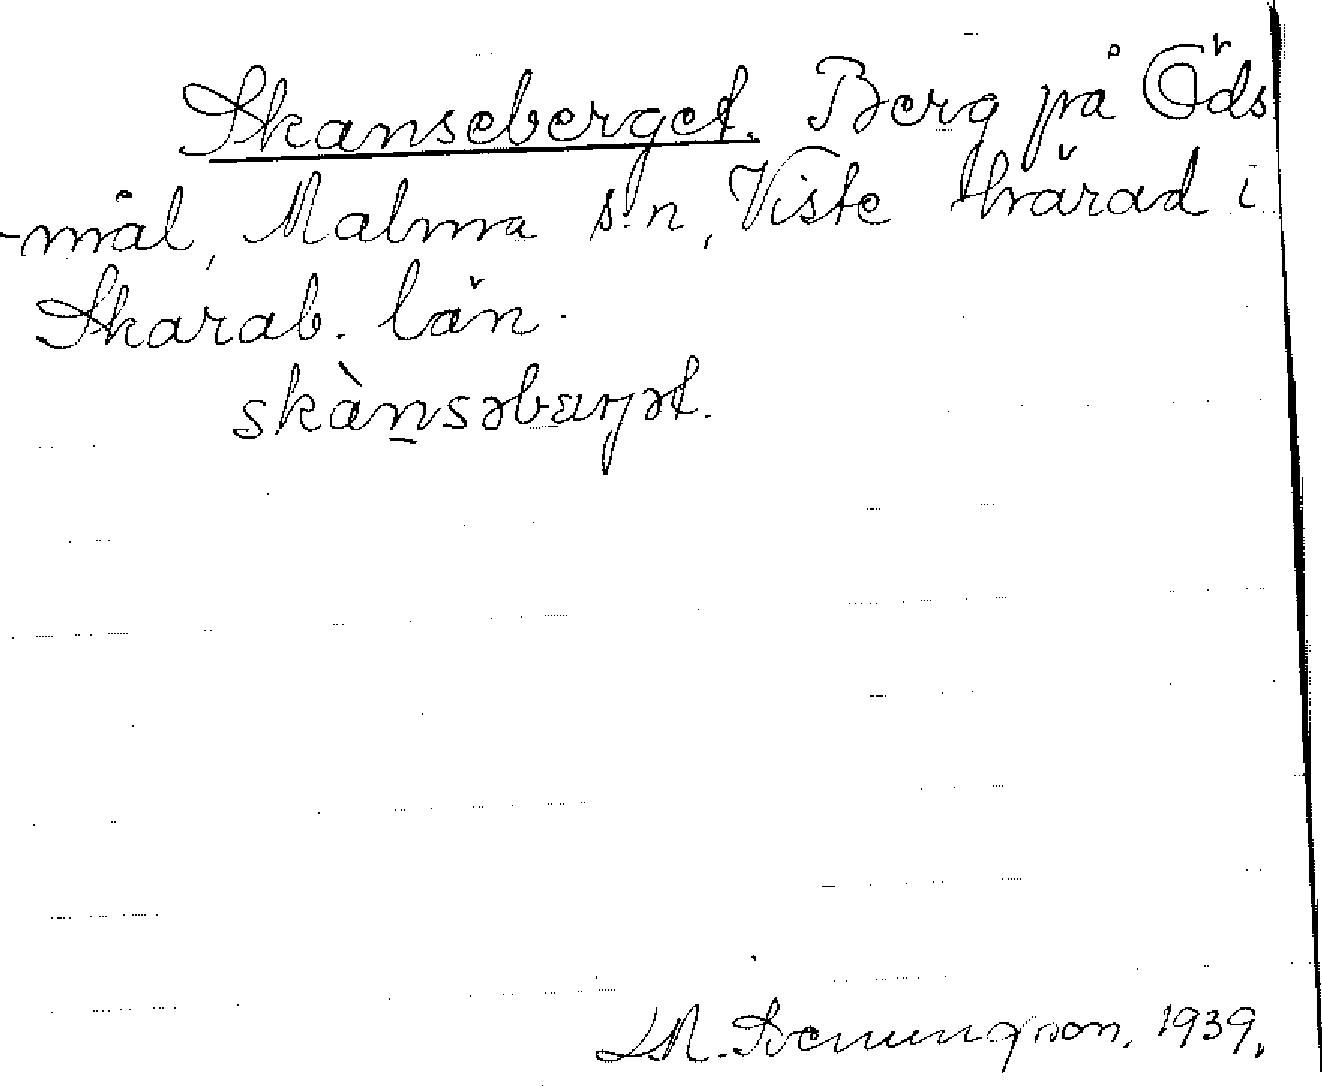 Skanseberget. Berg på Öds
-mål, Malma s:n, Viste härad i
Skarab. län.
skànsəbærjət.
L.M. Svenungsson. 1939.